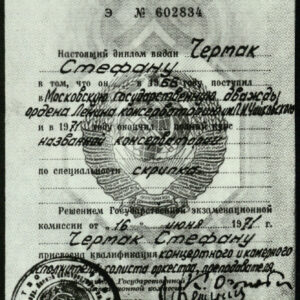 Э № 602834
Настоящий диплом выдан Чермак
Стефану
в том, что он в 1966 году поступил
в Московскую Государственную дважды
ордена Ленина консерваторию им. П.И. Чайковского
и в 1971 окончил полный курс
названной консерватории
по специальности скрипка.
Решением Государственной экзаменационной
комиссии от 16 июня 1971 г.
Чермак Стефану
присвоена квалификация концертного и камерного
исполнителя, солиста оркестра, преподавателя